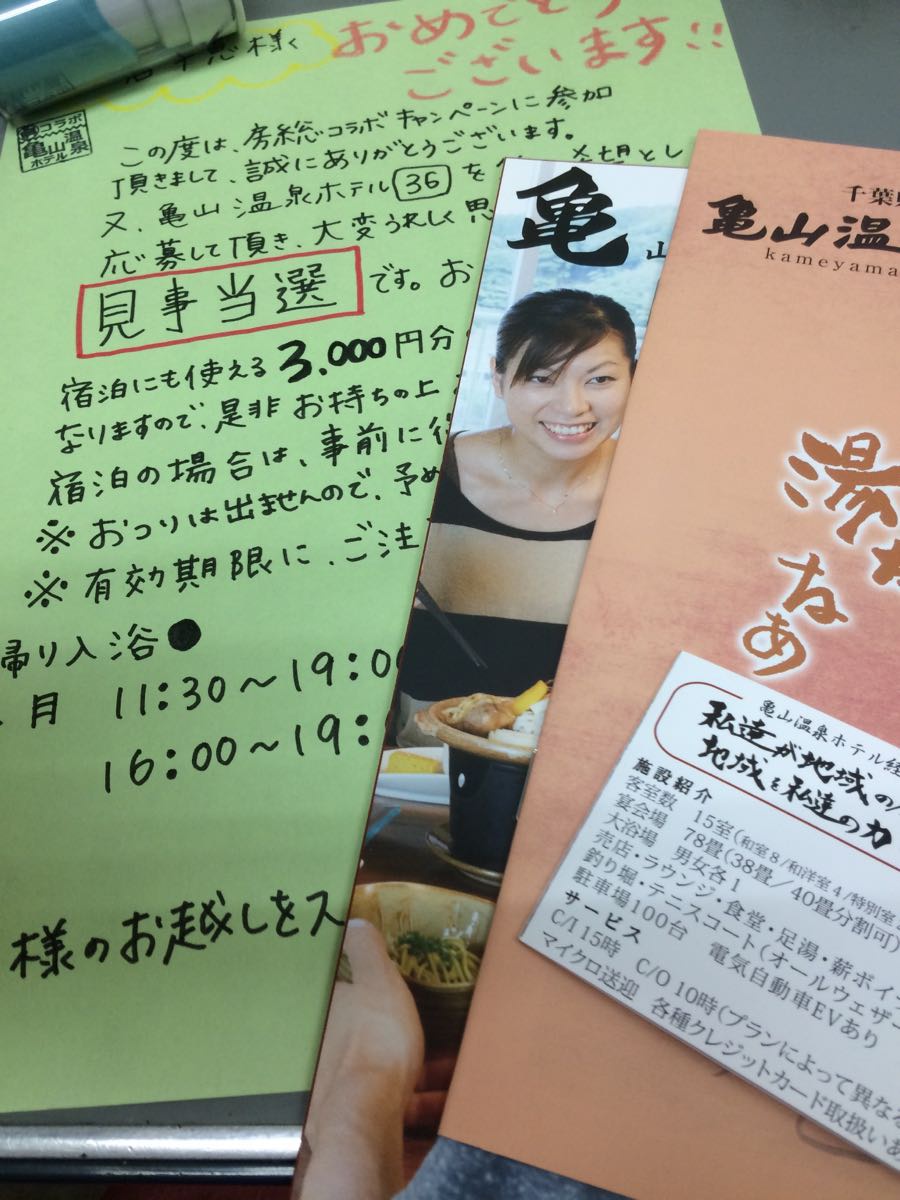 様へ
おめでとう
ございます!!
コラボ
亀山温泉
ホテル
この度は、房総コラボキャンペーンに参加
頂きまして、誠にありがとうございます。
又、亀山温泉ホテル36を
応募して頂き、大変うれしく思
見事当選です。お
宿泊にも使える3,000円分
なりますので、是非お持ちの上
宿泊の場合は、事前に
※おつりは出ませんので、予め
※有効期限に、ご注
帰り入浴●
月 11:30〜19:00
16:00〜19:
様のお越しをス
亀山
千葉県
亀山温
kameyama
湯
なあ
亀山温泉ホテル経
私達が地域の
地域を私達の力
施設紹介
客室数 15室(和室8/和洋室4/特別室
宴会場 78畳(38畳/40畳分割可)
大浴場 男女各1
売店・ラウンジ・食堂・足湯・薪ボイ
釣り堀・テニスコート(オールウェザー
駐車場100台 電気自動車EVあり
サービス
C/I 15時 C/O 10時(プランによって異なる
マイクロ送迎 各種クレジットカード取扱いあ